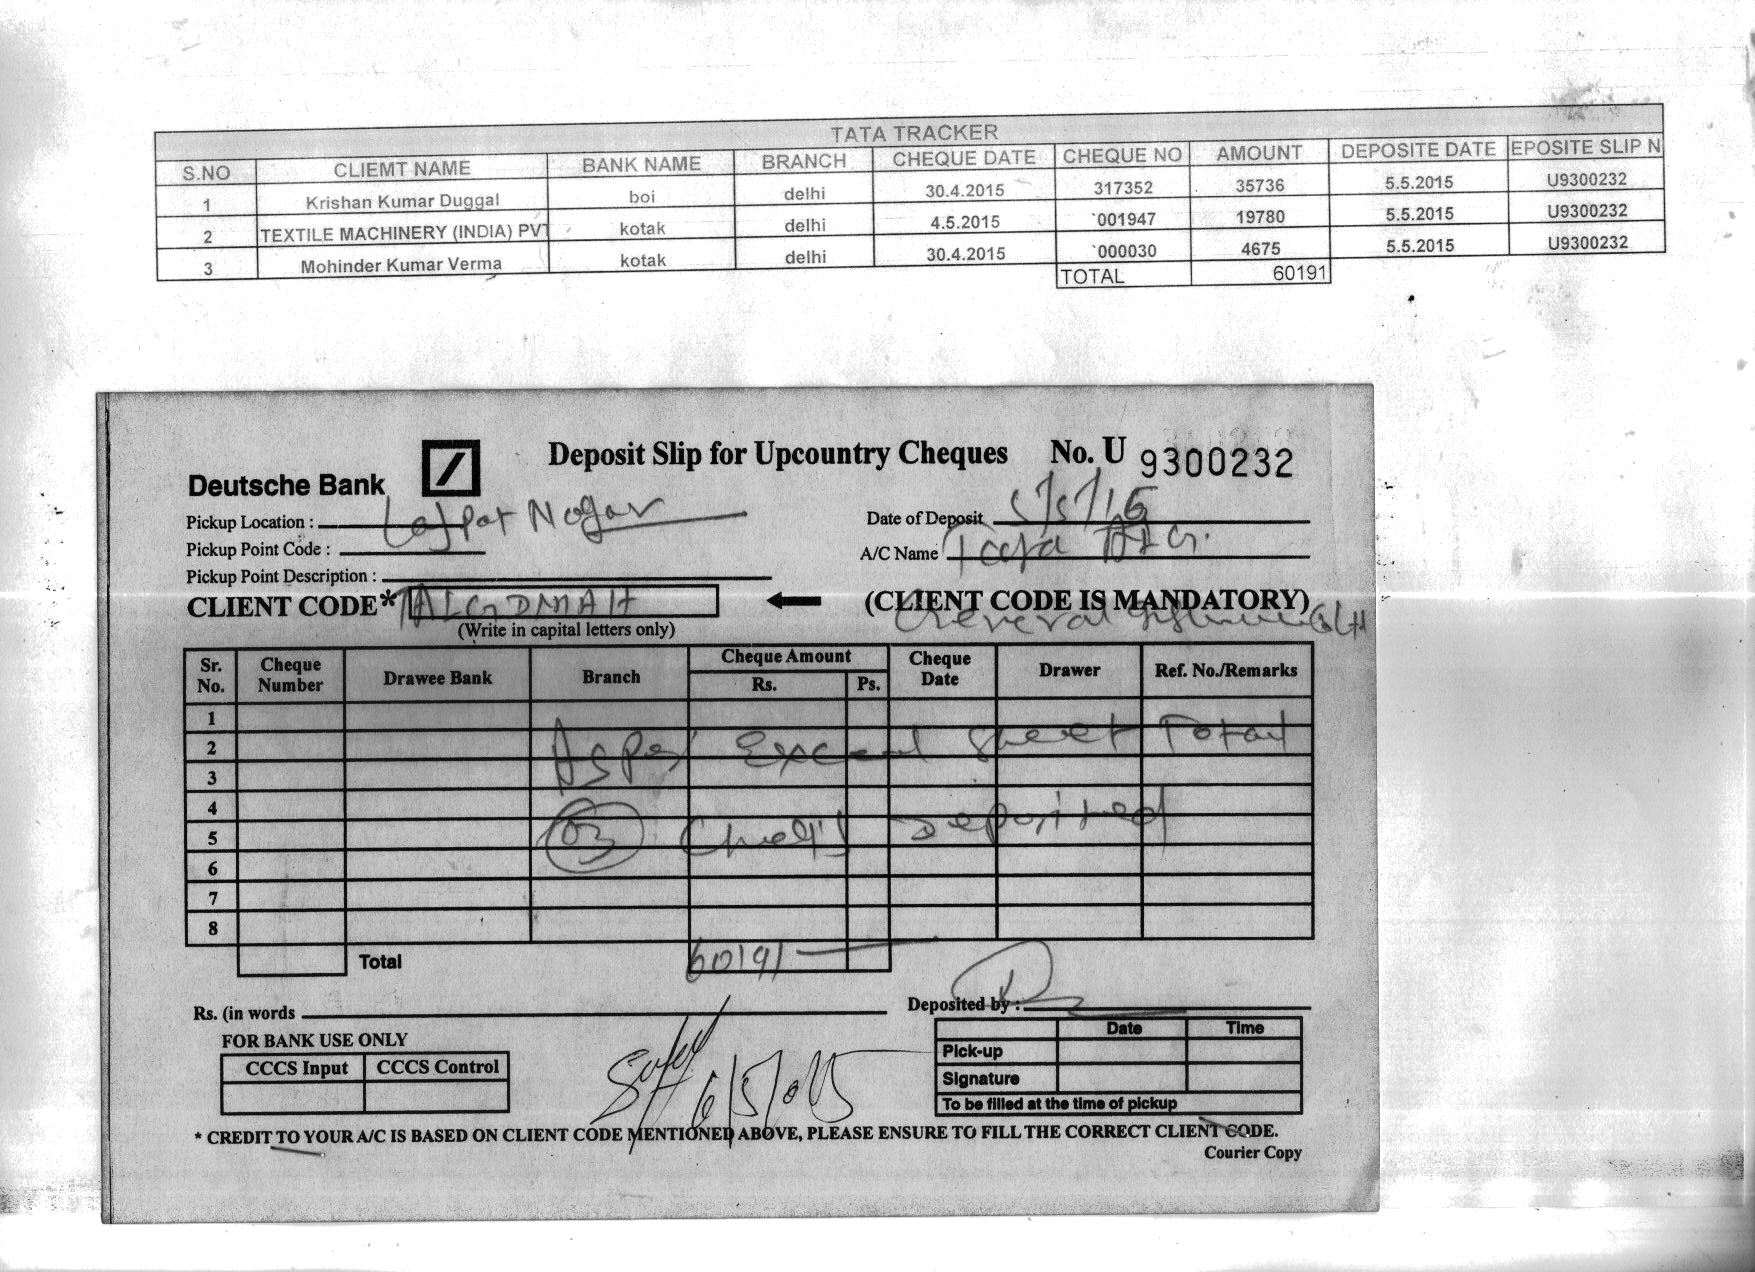 TATA TRACKER
S.NO CLIEMT NAME BANK NAME BRANCH CHEQUE DATE CHEQUE NO AMOUNT DEPOSITE DATE EPOSITE SLIP N
1 Krishan Kumar Duggal boi delhi 30.4.2015 317352 35736 5.5.2015 U9300232
2 TEXTILE MACHINERY (INDIA) PVT kotak delhi 4.5.2015 `001947 19780 5.5.2015 U9300232
3 Mohinder Kumar Verma kotak delhi 30.4.2015 `000030 4675 5.5.2015 U9300232
TOTAL 60191
Deutsche Bank
Deposit Slip for Upcountry Cheques No. U 9300232
Pickup Location : Lajpat Nagar
Date of Deposit 5/5/15
Pickup Point Code :
A/C Name Tata AIG.
Pickup Point Description :
CLIENT CODE* TALGDMAH
(CLIENT CODE IS MANDATORY)
General
(Write in capital letters only)
Sr. No. Cheque Number Drawee Bank Branch Cheque Amount Rs. Ps. Cheque Date Drawer Ref. No./Remarks
1
2 As Per Exceal Sheet Total
3
4
5 03 Cheq's Deposited
6
7
8
Total 60191
Rs. (in words
Deposited by :
FOR BANK USE ONLY
CCCS Input CCCS Control
Date Time
Pick-up
Signature
To be filled at the time of pickup
* CREDIT TO YOUR A/C IS BASED ON CLIENT CODE MENTIONED ABOVE, PLEASE ENSURE TO FILL THE CORRECT CLIENT CODE.
Courier Copy